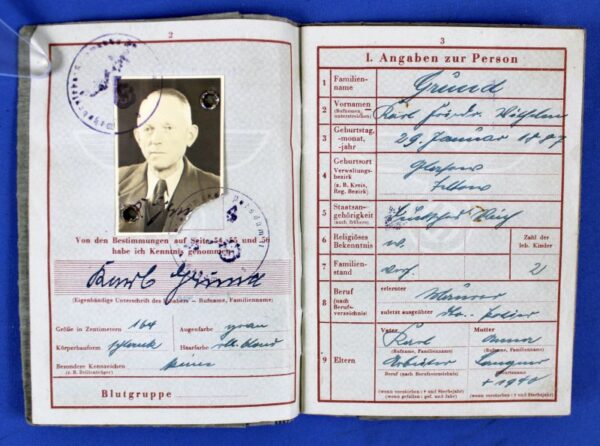 2
Von den Bestimmungen auf Seite 54, 55 und 56
habe ich Kenntnis genommen
Karl Grund
(Eigenhändige Unterschrift des Inhabers – Rufname, Familienname)
Größe in Zentimetern 164 Augenfarbe grau
Körperbauform schlank Haarfarbe dkl. blond
Besondere Kennzeichen keine
(z. B. Brillenträger)
Blutgruppe
3
I. Angaben zur Person
1 Familienname Grund
2 Vornamen (Rufnamen unterstreichen) Karl Friedr. Wilhelm
3 Geburtstag, -monat, -jahr 29. Januar 1887
4 Geburtsort Glasow
Verwaltungsbezirk (z. B. Kreis, Reg. Bezirk) Teltow
5 Staatsangehörigkeit (auch frühere) Reich
6 Religiöses Bekenntnis Zahl der leb. Kinder
7 Familienstand 2
8 Beruf (nach Berufsverzeichnis) erlernter Maurer
zuletzt ausgeübter polier
9 Eltern Vater Mutter
Karl
(Rufname, Familienname) (Rufname, Familienname)
Arbeiter
Beruf (nach Berufsverzeichnis) Geburtsname
† 1940
(wenn verstorben: † und Sterbejahr) (wenn verstorben † und Sterbejahr)
(wenn gefallen: gef. und Jahr)